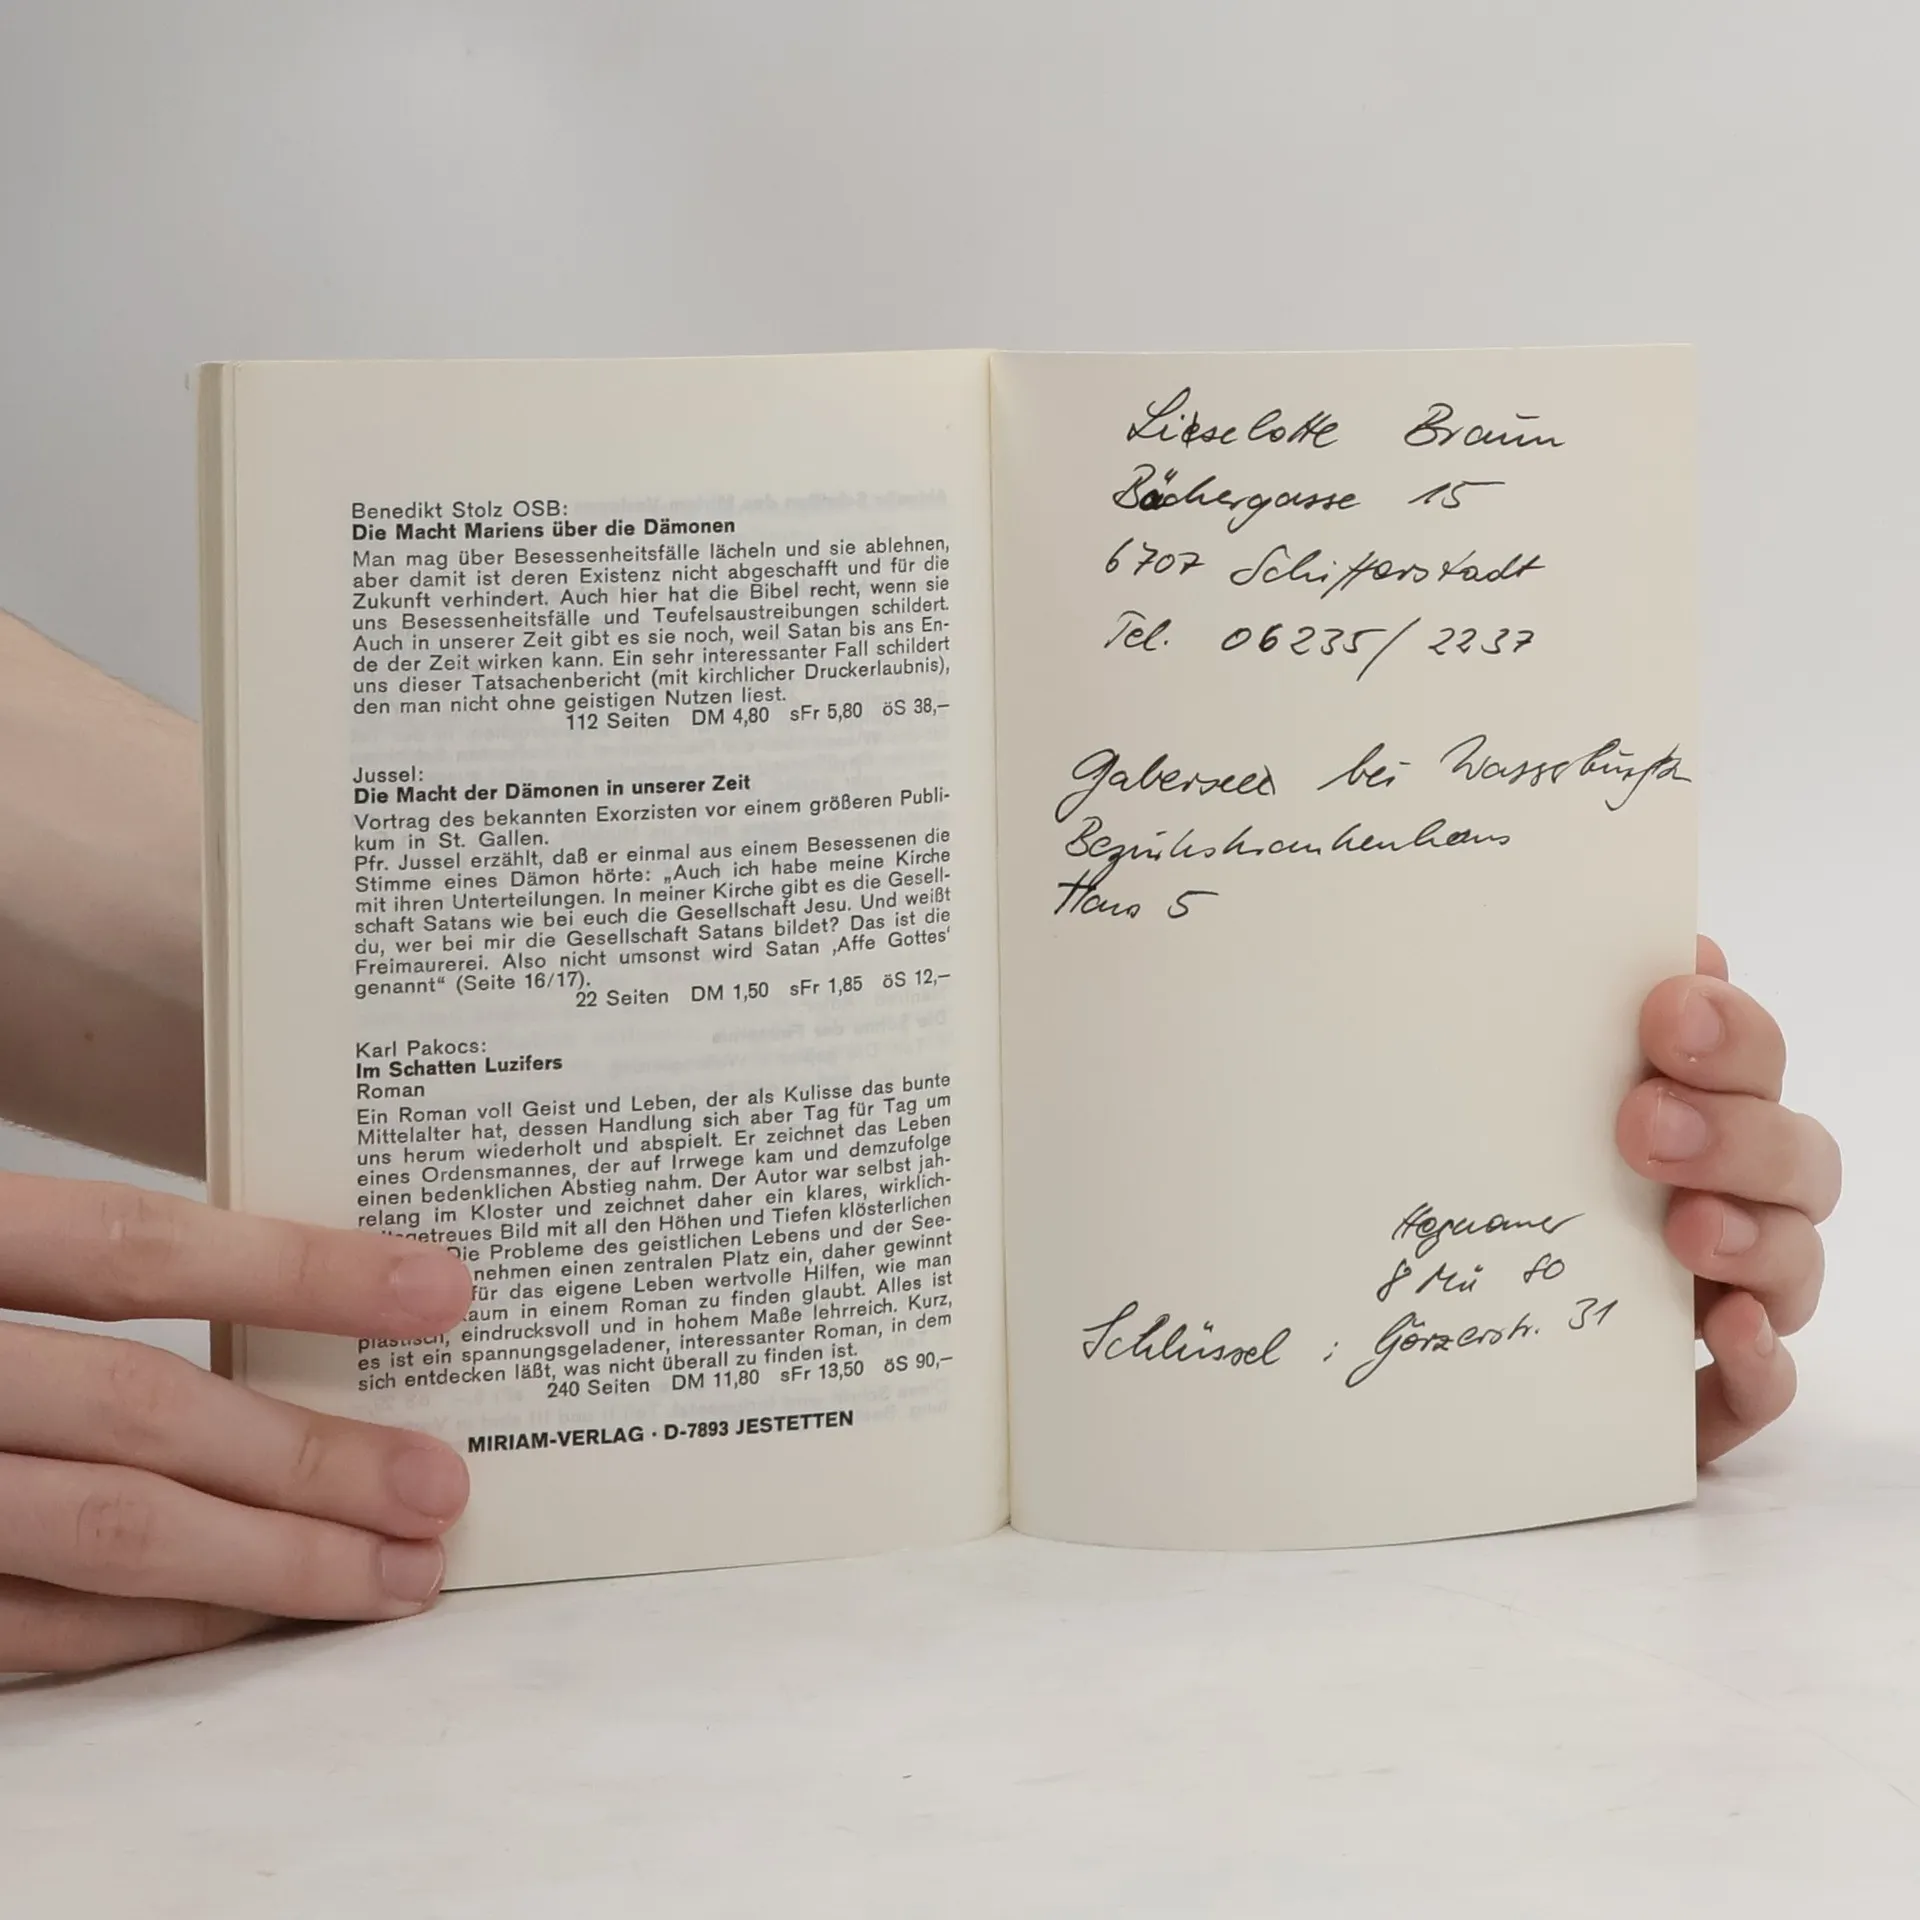 Benedikt Stolz OSB:
Die Macht Mariens über die Dämonen
Man mag über Besessenheitsfälle lächeln und sie ablehnen,
aber damit ist deren Existenz nicht abgeschafft und für die
Zukunft verhindert. Auch hier hat die Bibel recht, wenn sie
uns Besessenheitsfälle und Teufelsaustreibungen schildert.
Auch in unserer Zeit gibt es sie noch, weil Satan bis ans En-
de der Zeit wirken kann. Ein sehr interessanter Fall schildert
uns dieser Tatsachenbericht (mit kirchlicher Druckerlaubnis),
den man nicht ohne geistigen Nutzen liest.
112 Seiten DM 4,80 sFr 5,80 öS 38,—
Jussel:
Die Macht der Dämonen in unserer Zeit
Vortrag des bekannten Exorzisten vor einem größeren Publi-
kum in St. Gallen.
Pfr. Jussel erzählt, daß er einmal aus einem Besessenen die
Stimme eines Dämon hörte: „Auch ich habe meine Kirche
mit ihren Unterteilungen. In meiner Kirche gibt es die Gesell-
schaft Satans wie bei euch die Gesellschaft Jesu. Und weißt
du, wer bei mir die Gesellschaft Satans bildet? Das ist die
Freimaurerei. Also nicht umsonst wird Satan ‚Affe Gottes‘
genannt“ (Seite 16/17).
22 Seiten DM 1,50 sFr 1,85 öS 12,—
Karl Pakocs:
Im Schatten Luzifers
Roman
Ein Roman voll Geist und Leben, der als Kulisse das bunte
Mittelalter hat, dessen Handlung sich aber Tag für Tag um
uns herum wiederholt und abspielt. Er zeichnet das Leben
eines Ordensmannes, der auf Irrwege kam und demzufolge
einen bedenklichen Abstieg nahm. Der Autor war selbst jah-
relang im Kloster und zeichnet daher ein klares, wirklich-
getreues Bild mit all den Höhen und Tiefen klösterlichen
Die Probleme des geistlichen Lebens und der See-
nehmen einen zentralen Platz ein, daher gewinnt
für das eigene Leben wertvolle Hilfen, wie man
aum in einem Roman zu finden glaubt. Alles ist
plastisch, eindrucksvoll und in hohem Maße lehrreich. Kurz,
es ist ein spannungsgeladener, interessanter Roman, in dem
sich entdecken läßt, was nicht überall zu finden ist.
240 Seiten DM 11,80 sFr 13,50 öS 90,—
MIRIAM-VERLAG · D-7893 JESTETTEN
Lieselotte Braun
Bächergasse 15
6707 Schifferstadt
Tel. 06235/2237
Gabersee bei
Bezirkskrankenhaus
Haus 5
8 Mü 80
Schlüssel : Görzerstr. 31